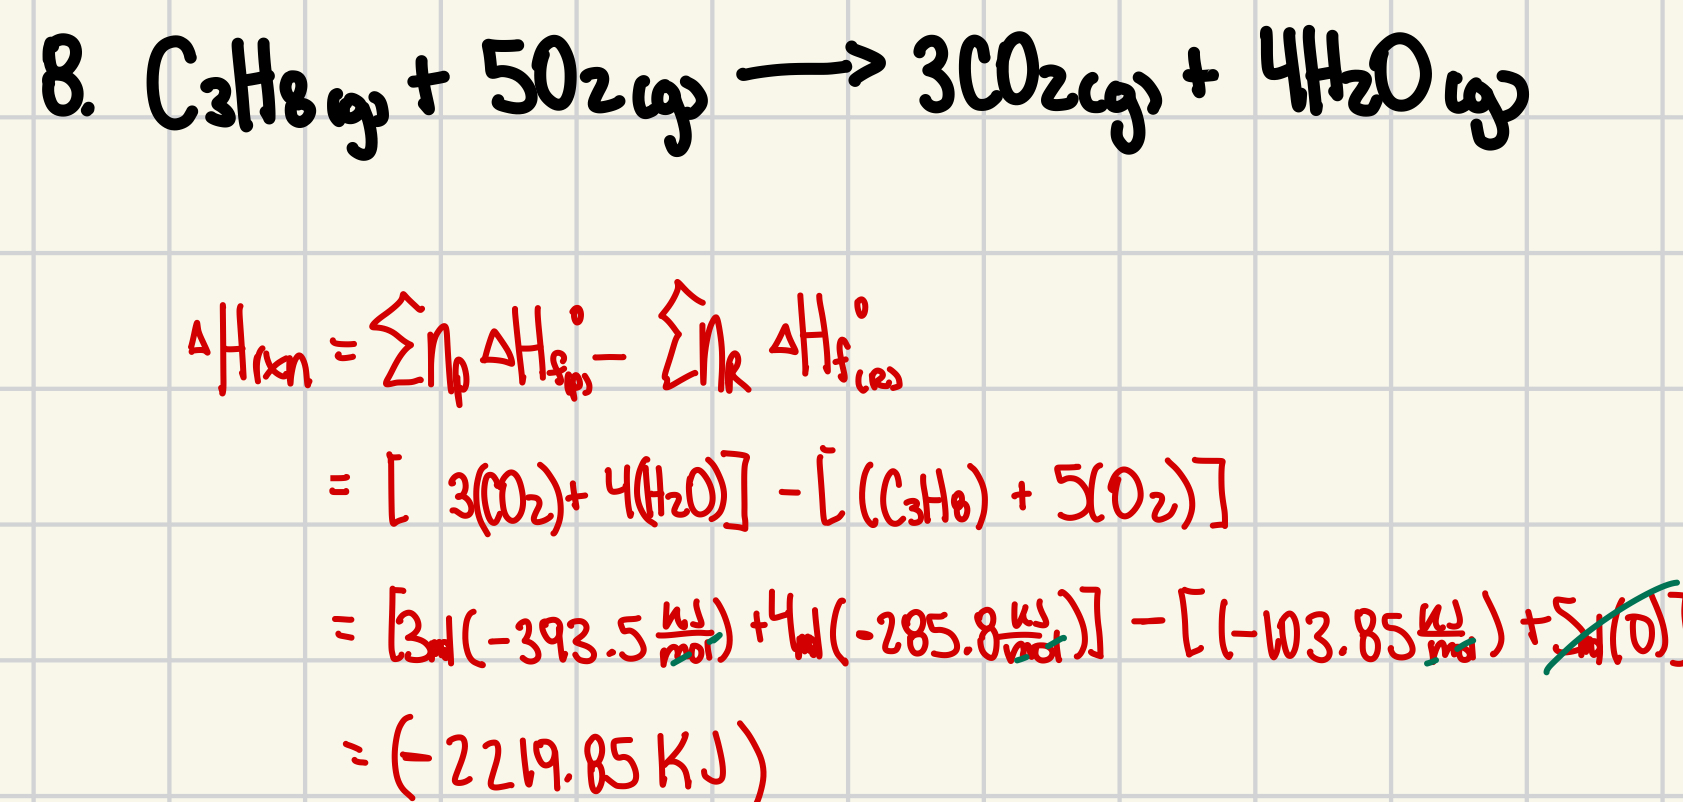 8. C₃H₈(g) + 5O₂(g) ⟶ 3CO₂(g) + 4H₂O(g)
ΔHrxn = ∑np ΔHf°(p) − ∑nR ΔHf°(R)
= [ 3(CO₂) + 4(H₂O)] − [(C₃H₈) + 5(O₂)]
= [3mol(−393.5 KJ/mol) + 4mol(−285.8 KJ/mol)] − [(−103.85 KJ/mol) + 5mol(0)]
= (−2219.85 KJ)